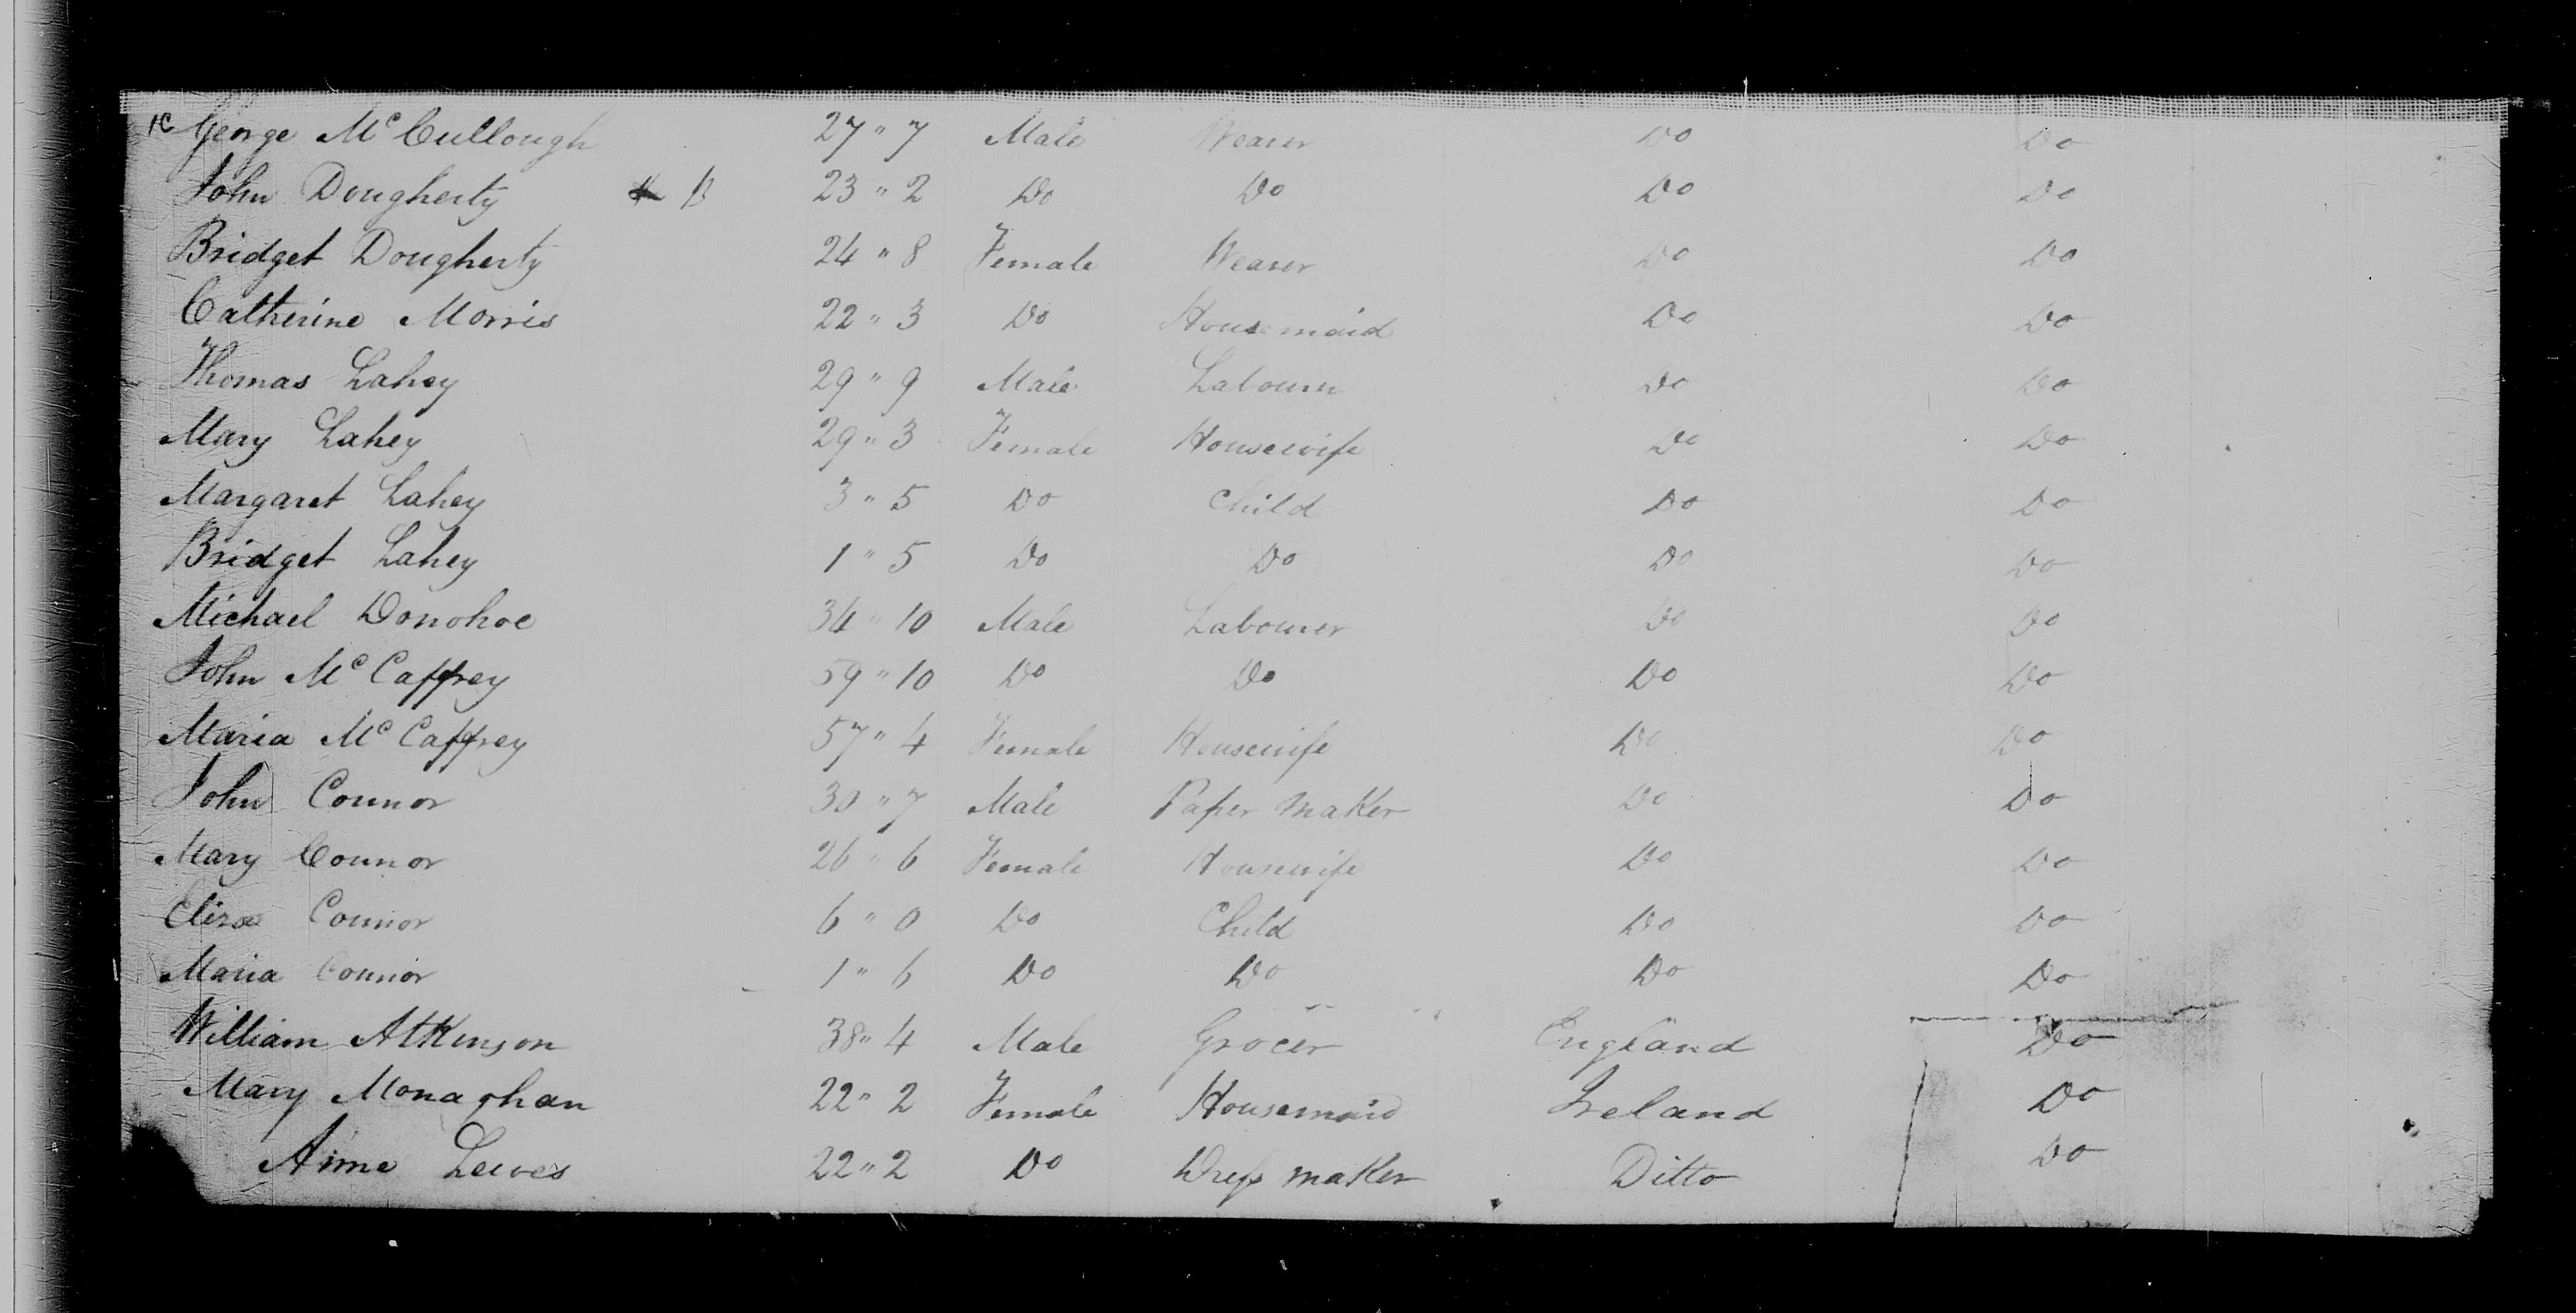 George Mc Cullough 27 " 7 Male Weaver Do Do
John Dougherty B 23 " 2 Do Do Do Do
Bridget Dougherty 24 " 8 Female Weaver Do Do
Catherine Morris 22 " 3 Do Housemaid Do Do
Thomas Lahey 29 " 9 Male Labourer Do Do
Mary Lahey 29 " 3 Female Housewife Do Do
Margaret Lahey 3 " 5 Do Child Do Do
Bridget Lahey 1 " 5 Do Do Do Do
Michael Donohoe 34 " 10 Male Labourer Do Do
John Mc Caffrey 59 " 10 Do Do Do Do
Maria Mc Caffrey 57 " 4 Female Housewife Do Do
John Connor 30 " 7 Male Paper maker Do Do
Mary Connor 26 " 6 Female Housewife Do Do
Eliza Connor 6 " 0 Do Child Do Do
Maria Connor 1 " 6 Do Do Do Do
William Atkinson 38 " 4 Male Grocer England Do
Mary Monaghan 22 " 2 Female Housemaid Ireland Do
22 " 2 Do Dress maker Ditto Do